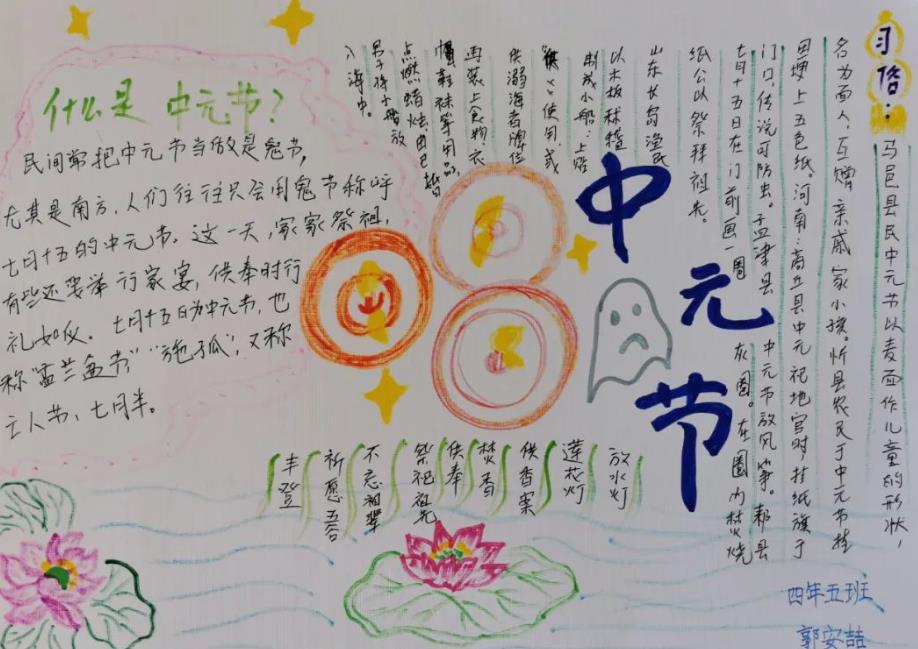 什么是 中元节？
民间常把中元节当做是鬼节，
尤其是南方，人们往往只会用鬼节称呼
七月十五的中元节。这一天，家家祭祖，
有些还要举行家宴，供奉时行
礼如仪。七月十五日为中元节，也
称“盂兰盆节”“施孤”，又称
亡人节、七月半。
中元节
习俗：
马邑县民中元节以麦面作儿童的形状，
名为面人，互赠亲戚家小孩。忻县农民于中元节挂
田埂上五色纸。河南：商丘县中元祀地官时，挂纸旗于
门口，传说可防虫。孟津县中元节放风筝。郏县
七月十五日在门前画一圈灰圈。在圈内焚烧
纸公以祭拜祖先。
山东长岛渔民
以木板秫秸
制成小船：上贴
使用，或
供溺海者牌位
再装上食物、衣
帽鞋袜等用品，
点燃蜡烛，由已婚
男子将小船放
入海中。
放水灯
莲花灯
供香案
焚香
供奉
祭祀祖先
不忘祖辈
祈愿五谷
丰登
四年五班
郭安喆